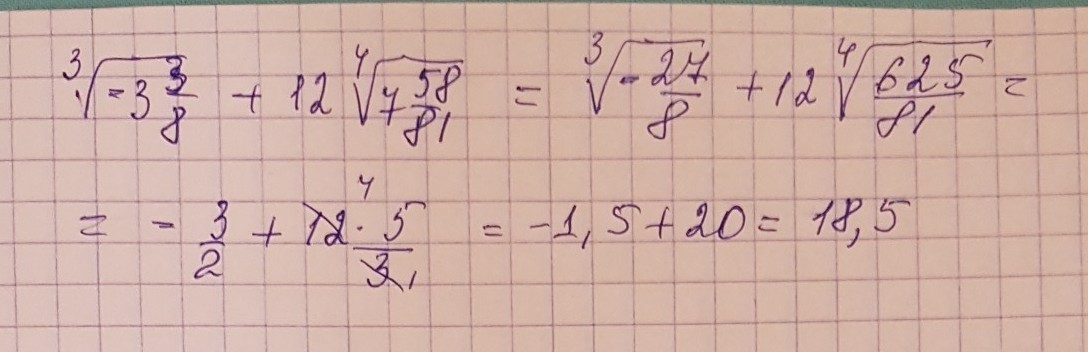 ∛(-3 3/8) + 12 ∜(7 58/81) = ∛(-27/8) + 12 ∜(625/81) =
= - 3/2 + 12 · 5/3 4 1 = -1,5 + 20 = 18,5